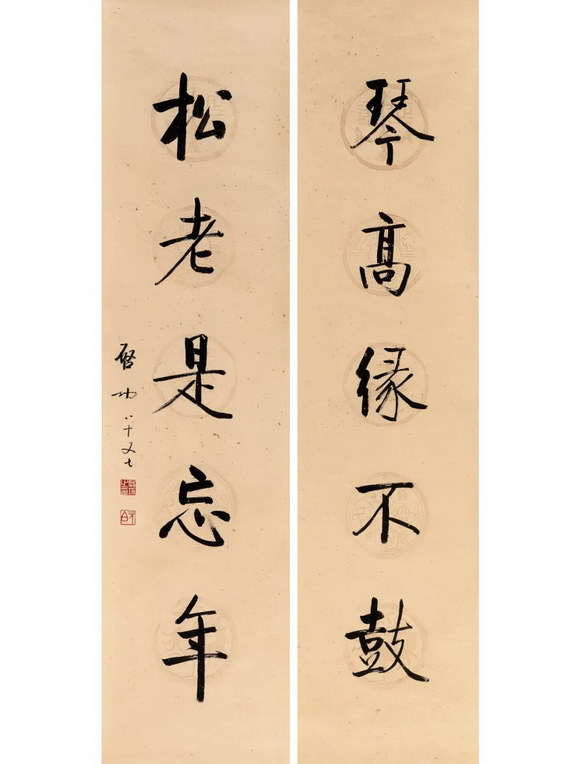 琴高缘不鼓
松老是忘年
启功八十又七